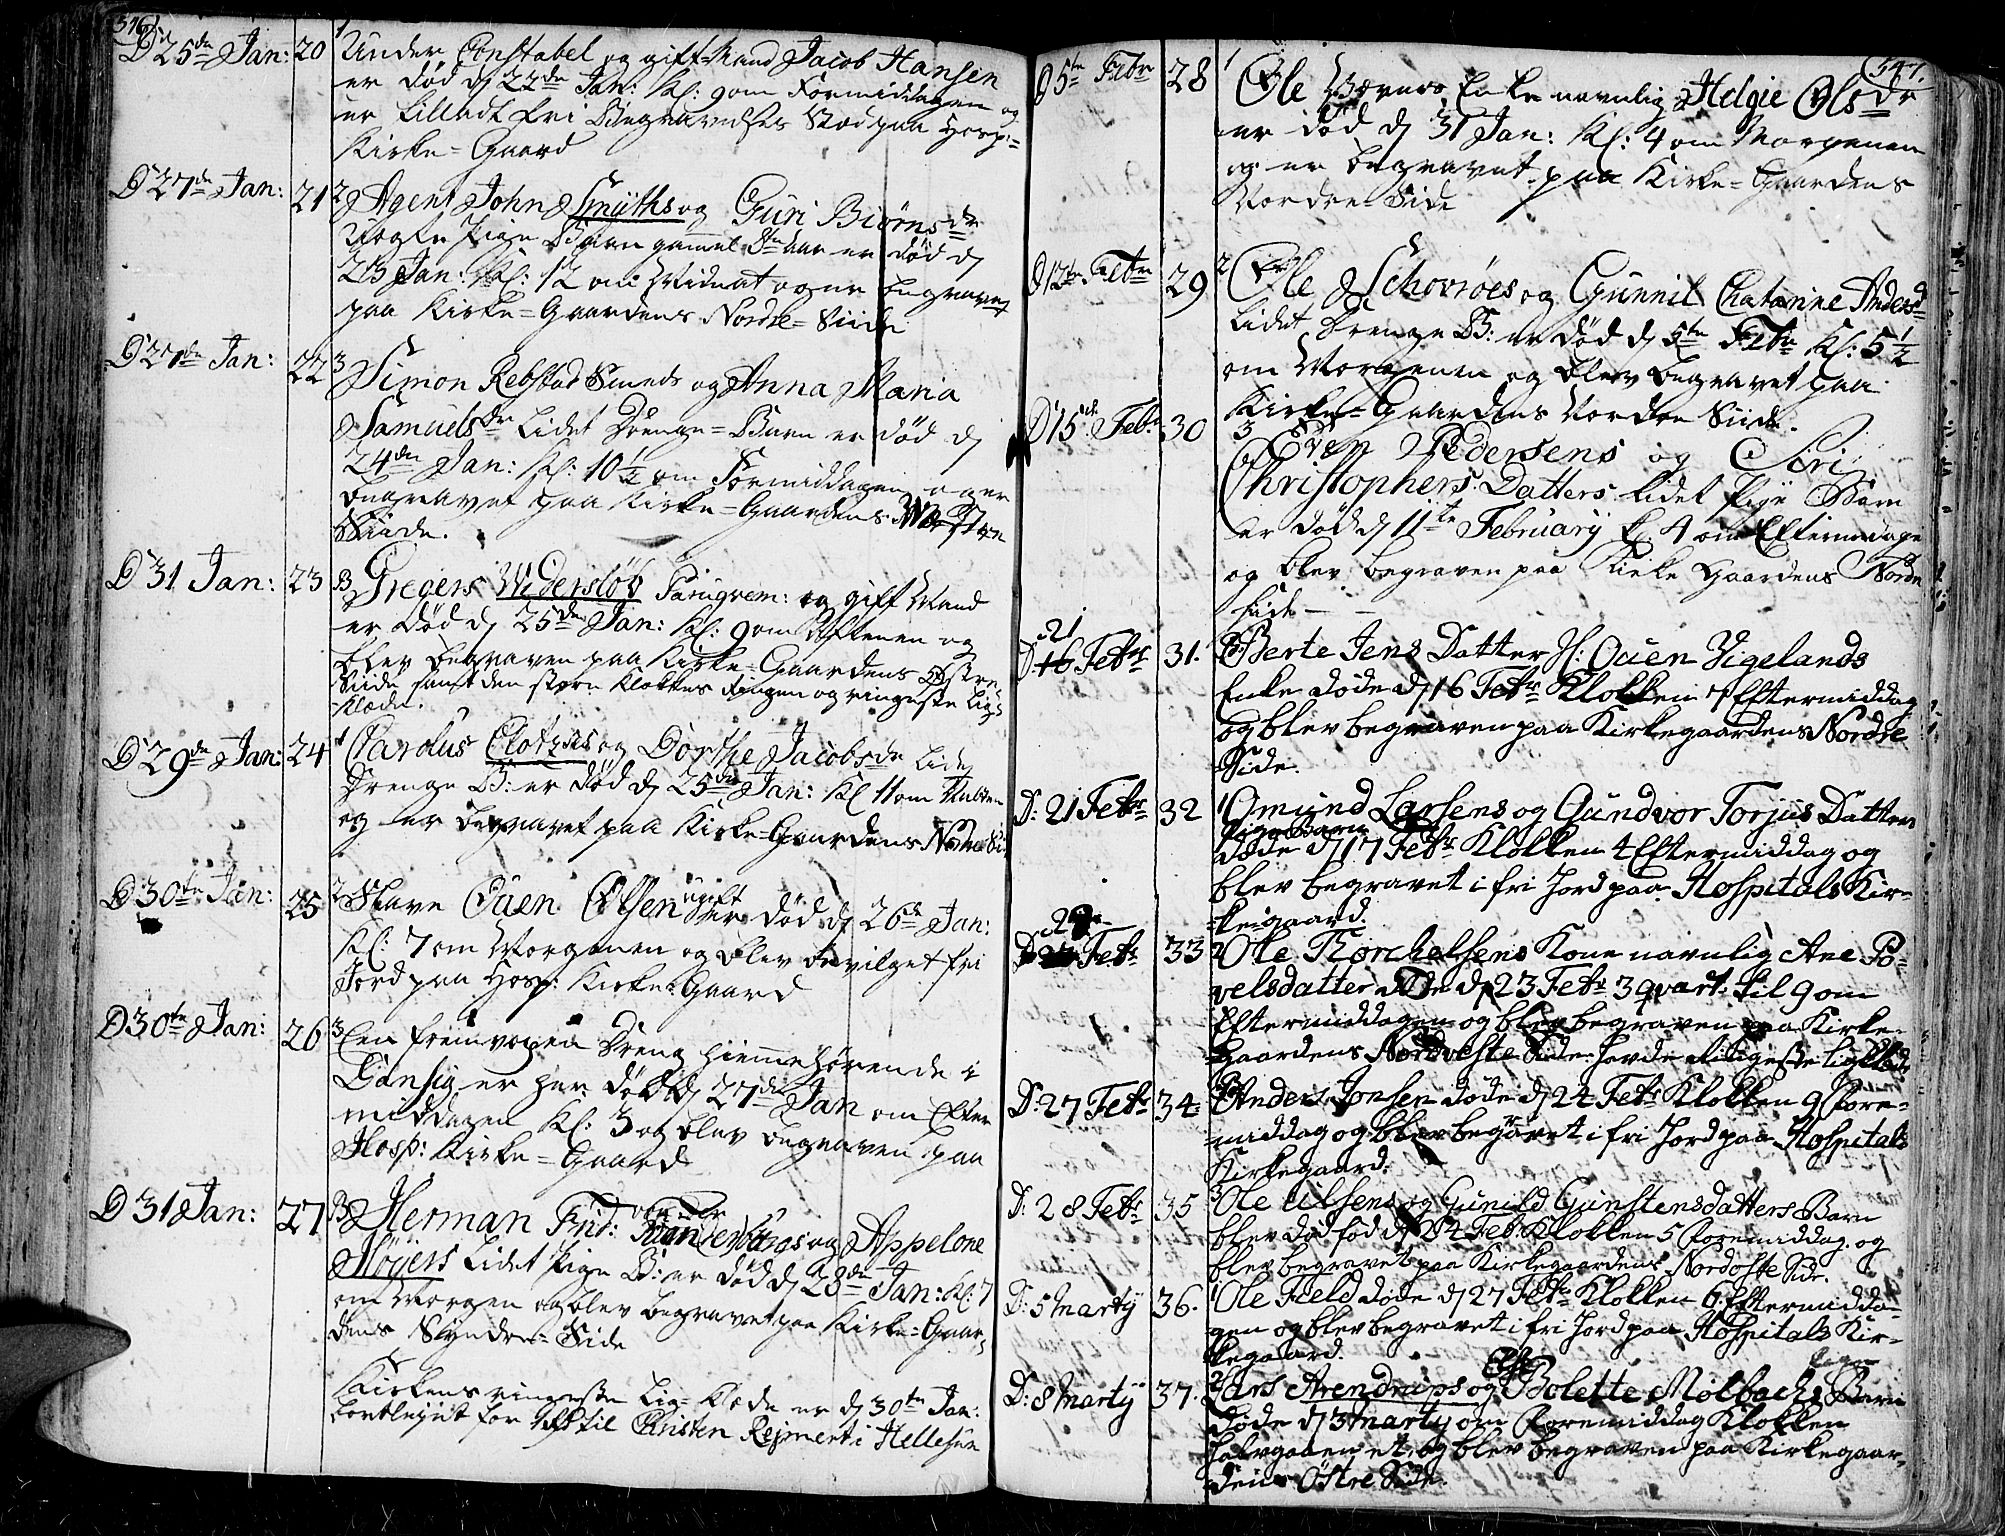 546
D 25de Jan: 20 1 Under Constabel og gift Mand Jacob Hansen
er død d 22de Jan: Kl: 9 om Formiddagen og
er tilladt fri Begravelses Stæd paa Hosp:
Kirke-Gaard
D 27de Jan: 21 2 Agent John Smyths og Guri Biørnsdr
uægte Pige Barn gammel 8te aar er død d
23 Jan: Kl: 12 om Midnat og er begravet
paa Kirke-Gaardens Nordre-Siide
D 27de Jan: 22 3 Simon Rebstad Smeds og Anna Maria
Samuelsdr lidet Drenge-Barn er død d
24de Jan: Kl: 10 1/2 om Formiddagen og er
begravet paa Kirke-Gaardens
Siide.
D 31 Jan: 23 B Gregers Widersløv Parugvem: og gift Mand
er død d 25de Jan: Kl: 9 om Aftenen og
blev begraven paa Kirke-Gaardens Østre
Siide samt den store Klokkes Ringen og ringeste Lig-
klæde.
D 29de Jan: 24 1 Carolus Clotzes og Dorthe Jacobsdr lidet
Drenge B: er død d 25de Jan: Kl 11 om Natten
og er begravet paa Kirke-Gaardens Nordre Si:
D 30te Jan: 25 2 Slave Ouen Olsen ugift er død d 26de Jan:
Kl: 7 om Morgenen og blev bevilget fri
Jord paa Hosp: Kirke-Gaard
D 30te Jan: 26 3 Een fremvoxen Dreng hiemmehørende i
Dansig er her død d 27de Jan om Efter
middagen Kl: 3 og blev begraven paa
Hosp: Kirke-Gaard
D 31 Jan: 27 B Herman Frid: og Appelone
Møyers lidet Pige B: er død d 28de Jan: Kl: 7
om Morgen og blev begravet paa Kirke-Gaar,
dens Syndre-Side
Kirkens ringeste Lig-Klæde er d 30te Jan:
bortlejet for til Christen Rejmert i Hellesun
547.
D 5te Febr 28 1 Ole Enke navnlig Helgie Olsdr
er død d 31 Jan: Kl: 4 om Morgenen
og er begravet paa Kirke-Gaardens
Nordre Side
D 12te Febr 29 2 Ole Schovrøes og Gunnil Chatarine Andersd
lidet Drenge B: er død d 5te Febr Kl: 5 1/2
om Morgenen og blev begravet paa
Kirke-Gaardens Nordre Siide.
D 15de Febr. 30 3 Even Pedersens og Siri
Christophers Datters lidet Pige Barn
er død d 11te February k 4 om Eftermidagen
og blev begraven paa Kirke Gaardens Nordre
Side -
21
D 16 Febr 31. B Berte Jens Datter H: Ouen Vigelands
Enke døde d 16 Febr Klokken 7 Eftermiddag
og blev begraven paa Kirkegaardens Nordre
Side.
D: 21 Febr 32 1 Omund Larsens og Gundvor Torjus Datters
Pigebarn
døde d 17 Febr Klokken 4 Eftermiddag og
blev begravet i fri Jord paa Hospitals Kir-
kegaard.
D Febr 33 2 Ole Thorchelsens Kone navnlig Ane Po-
velsdatter døde d 23 Febr 3 qvart: til 9 om
Eftermiddagen og blev begraven paa Kirke-
gaardens Nordveste Side havde Ringeste Ligklæde
D: 27 Febr 34 Anders Jonsen døde d 24 Febr Klokken 9 Fore-
middag og blev begravet i fri Jord paa Hospitals
Kirkegaard.
D: 28 Febr 35 3 Ole Nilsens og Gunild Gunstensdatters Barn
blev dødfød d 24 Feb: Klokken 5 Foremiddag og
blev begravet paa Kirkegaardens Nordoste Side.
D: 5 Marty 36. 1 Ole Field døde d 27 Febr Klokken 6 Eftermidda-
gen og blev begravet i fri Jord paa Hospitals Kir-
kegaard.
D: 8 Marty 37. 2 Lars Arendrups og Else Bolette Molbachs Barn
døde d 3 Marty om Foremiddag Klokken
halvgaaen et, og blev begraven paa Kirkegaar,
dens Østre Side.